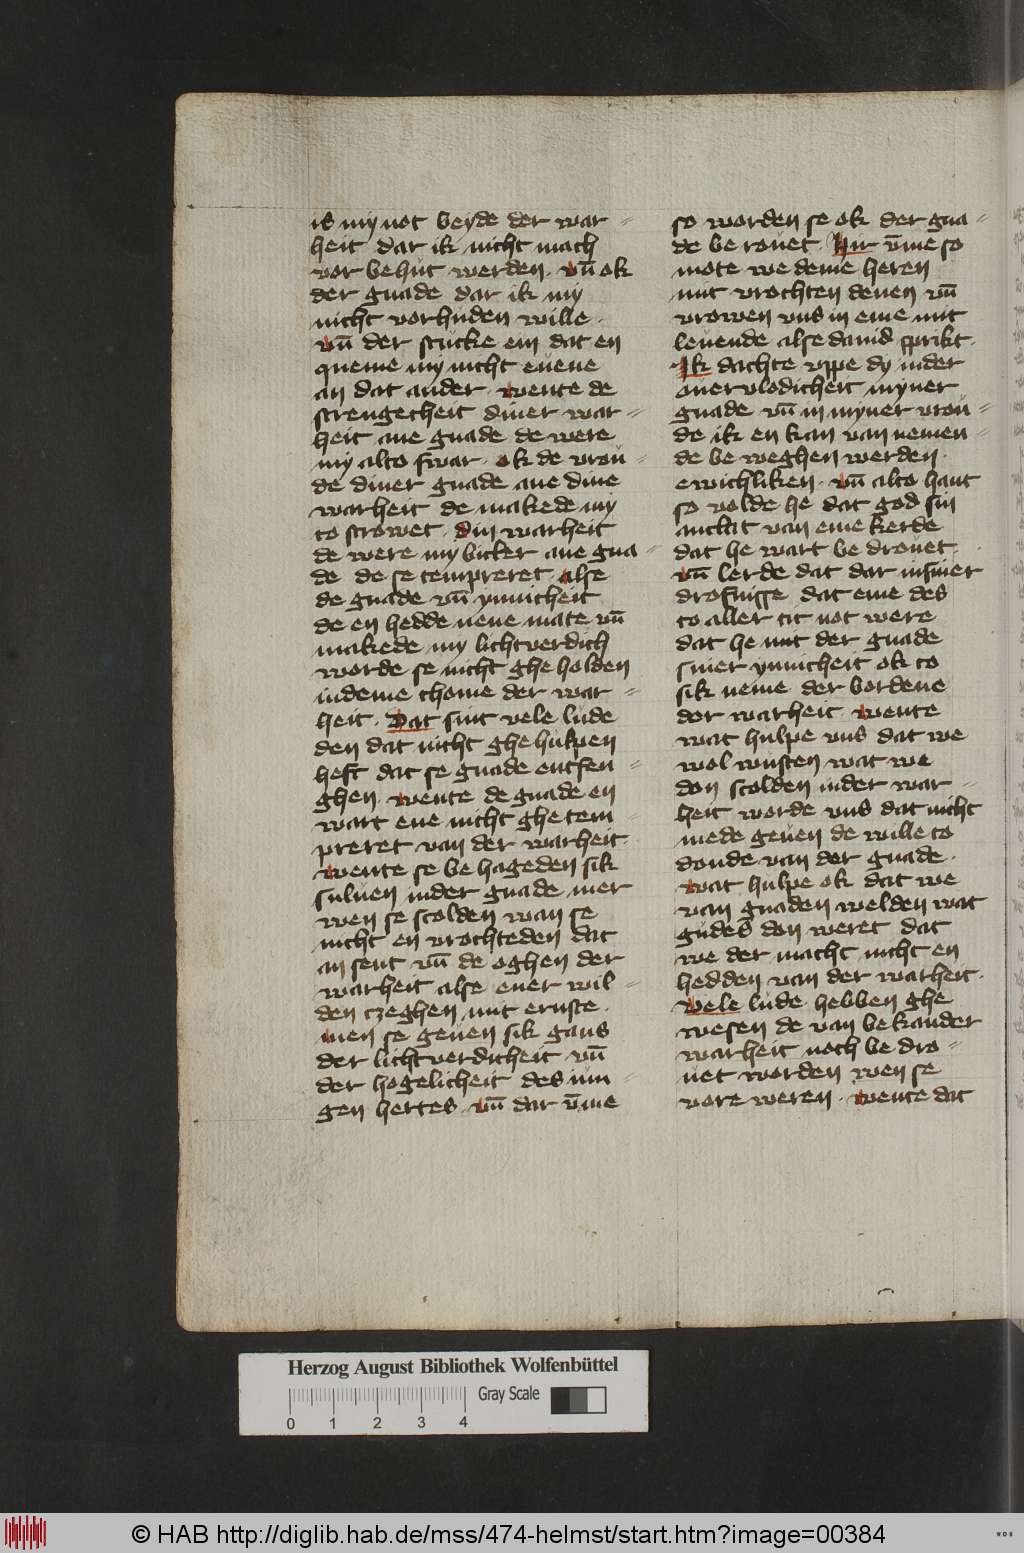 is my not beyde der war=
heit dar ik nicht mach
vor behut werden. vn̄ ok
der gnade dar ik my
nicht vorhuden wille.
vn̄ der stucke ein dat en
queme my nicht euene
an dat ander. wente de
strengecheit diner war=
heit ane gnade de were
my alto swar. ok de vrou=
de diner gnade ane dine
warheit de makede my
to strowet. din warheit
de were my bitter ane gna=
de de se tempreret. alse
de gnade vn̄ ynnicheit
de en hedde nene mate vn̄
makede my lichtverdich
worde se nicht ghe holden
indeme thome der war=
heit. Dat sint vele lude
den dat nicht ghe hulpen
heft dat se gnade entfen=
ghen. wente de gnade en
wart ene nicht ghe tem
preret van der warheit.
wente se be hageden sik
suluen inder gnade mer
wen se scolden wan se
nicht en vrochteden dat
an sent vn̄ de oghen der
warheit alse ener wil=
den czeghen mit ernste.
men se geuen sik gans
der lichtverdicheit vn̄
der hogelicheit des inn=
gen hertes. vn̄ dar v̄me
so worden se ok der gna=
de be rouet. Hir v̄me so
mote we deme heren
mit vrochten denen vn̄
vrowen vns in eme mit
leuende alse dauid sprikt.
Ik dachte vppe dy inder
ouervlodicheit myner
gnade vn̄ in myner vrou=
de ik en kan van nemen=
de be weghen werden.
ewichliken. vn̄ alto hant
so volde he dat god sin
antlat van eme kerde
dat he wart be drouet.
vn̄ lerde dat dar in siner
drofnisse dat eme des
to aller tit not were
dat he mit der gnade
siner ynnicheit ok to
sik neme der bordene
der warheit. wente
wat hulpe vns dat we
wol wusten wat we
don scolden inder war=
heit worde vns dat nicht
mede geuen de wille to
donde van der gnade.
wat hulpe ok dat we
van gnaden welden wat
gudes don weret dat
we der macht nicht en
hedden van der warheit.
Vele lude hebben ghe
wesen de van bekander
warheit noch be dro=
uet worden wen se
vore weren. wente dat
Herzog August Bibliothek Wolfenbüttel
Gray Scale
0 1 2 3 4
© HAB http://diglib.hab.de/mss/474-helmst/start.htm?image=00384
WDB